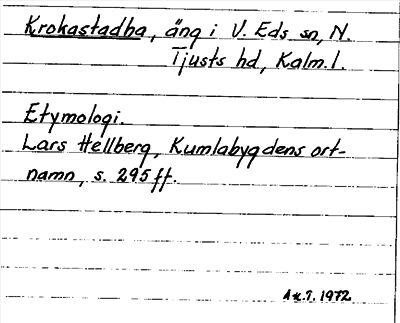 Krokastadba, äng i V. Eds sn, N.
Tjusts hd, Kalm.l.
Etymologi.
Lars Hellberg, Kumlabygdens ort-
namn, s. 295 ff.
1972